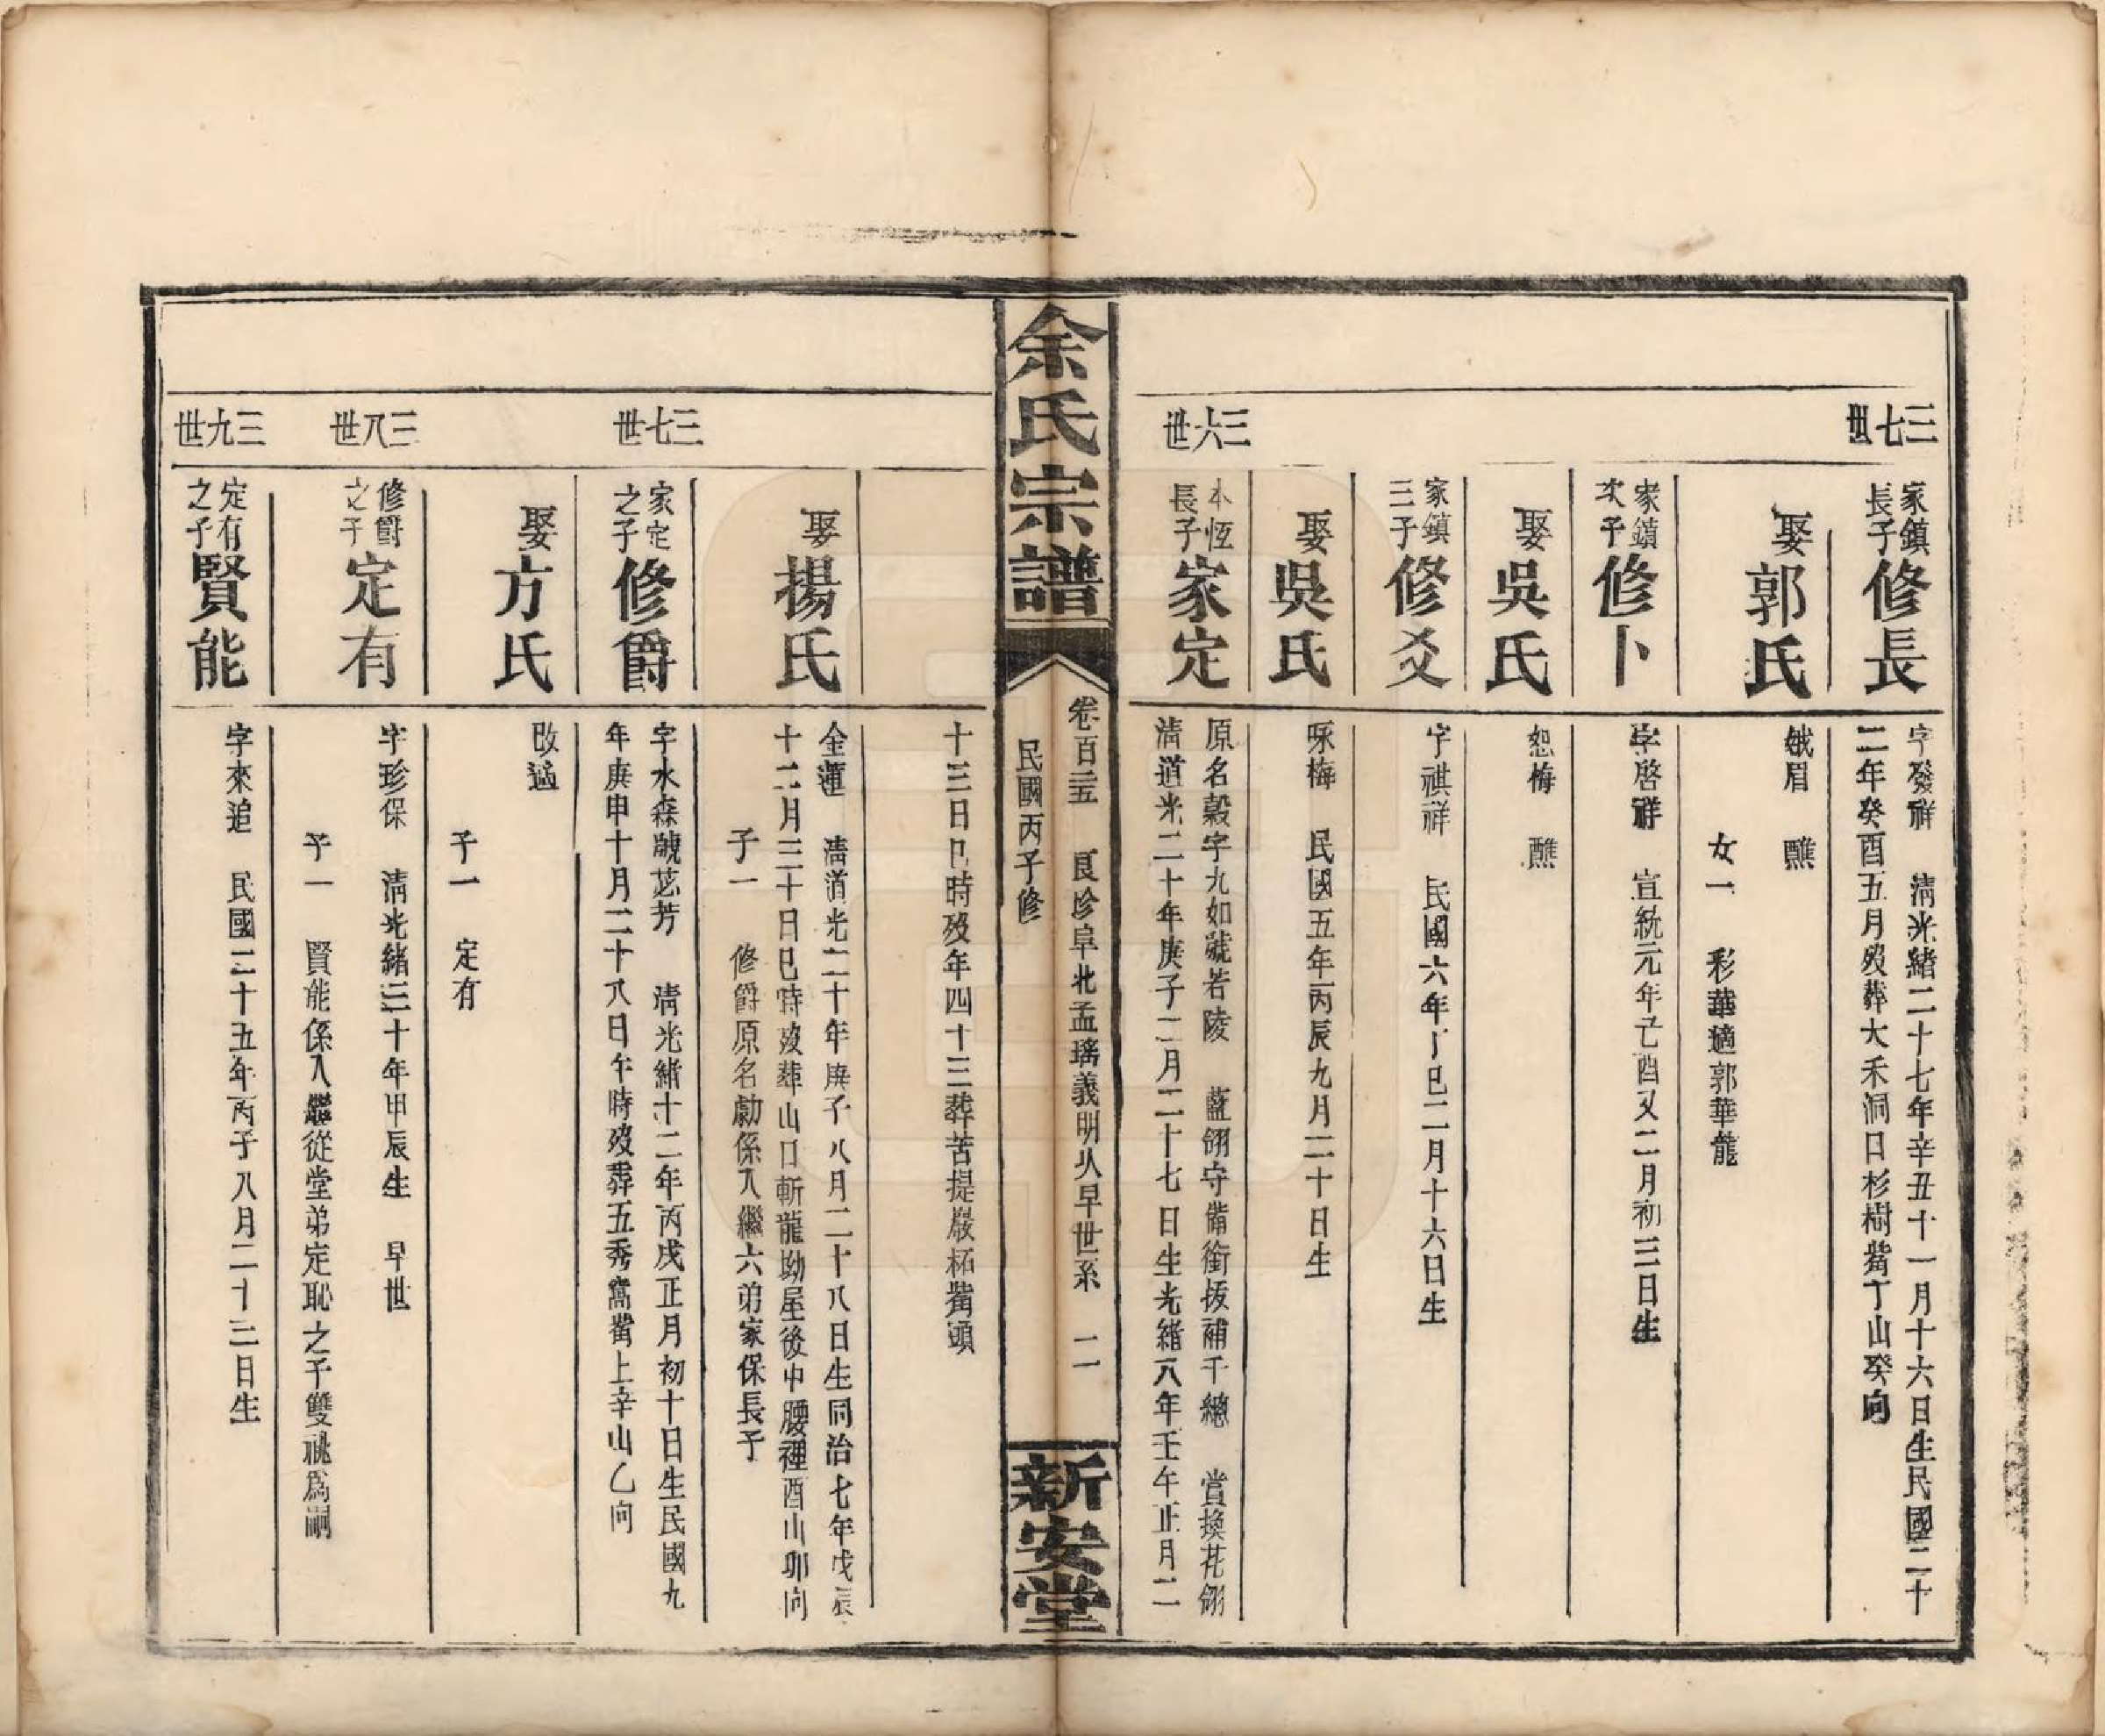 三七世
家鎮長子 修長
字發祥　清光緒二十七年辛丑十一月十六日生民國二十
二年癸酉五月歿葬大禾洞口杉樹嘴丁山癸向
娶郭氏
娥眉　醮
女一　彩華適郭華龍
家鎮次子 修卜
字啓祥　宣統元年己酉又二月初三日生
娶吳氏
恕梅　醮
家鎮三子 修爻
字祺祥　民國六年丁巳二月十六日生
娶吳氏
咏梅　民國五年丙辰九月二十日生
三六世
本恆長子 家定
原名穀字九如號若陵　藍翎守備銜拔補千總　賞換花翎
清道光二十年庚子二月二十七日生光緒八年壬午正月二
余氏宗譜
卷百三五　良珍阜北孟瑤義明从早世系　二
民國丙子修
新安堂
十三日巳時歿年四十三葬苦提嚴柘嘴頭
娶楊氏
金蓮　清道光二十年庚子八月二十八日生同治七年戊辰
十二月三十日巳時歿葬山口斬龍坳屋後中腰裡酉山卯向
子一　修爵原名勳係入繼六弟家保長子
三七世
家定之子 修爵
字水森號苾芳　清光緒十二年丙戌正月初十日生民國九
年庚申十月二十八日午時歿葬五秀窩嘴上辛山乙向
娶方氏
改適
子一　定有
三八世
修爵之子 定有
字珍保　清光緒三十年甲辰生　早世
子一　賢能係入繼從堂弟定恥之子雙祧爲嗣
三九世
定有之子 賢能
字來追　民國二十五年丙子八月二十三日生